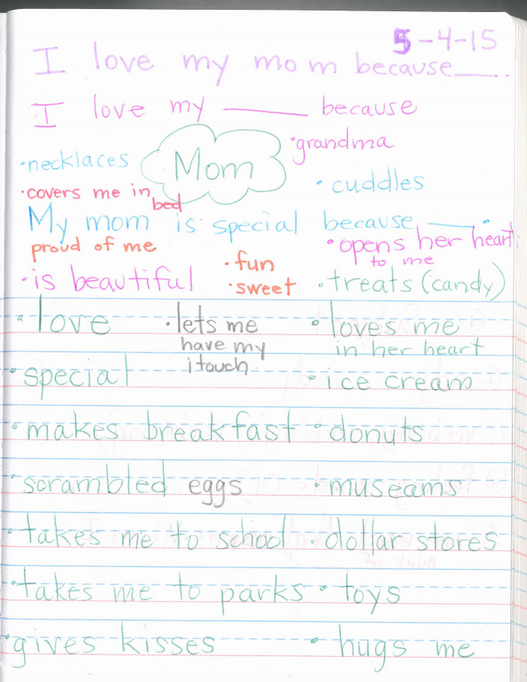 5-4-15
I love my mom because___.
I love my ______ because
•grandma
•necklaces
Mom
•cuddles
•covers me in
bed
My mom is special because ____.
proud of me
•opens her heart
to me
•fun
•is beautiful
•sweet
•treats (candy)
•love •lets me •loves me
have my in her heart
itouch
•special •ice cream
•makes breakfast •donuts
•scrambled eggs •museams
•takes me to school •dollar stores
•takes me to parks •toys
•gives kisses •hugs me